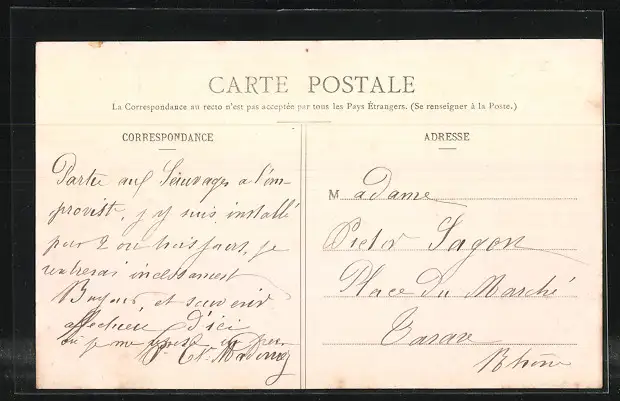 CARTE POSTALE
La Correspondance au recto n'est pas acceptée par tous les Pays Étrangers. (Se renseigner à la Poste.)
CORRESPONDANCE
Partie aux Sauvages a l'im-
proviste, j'y suis installé
pour 2 ou trois jours, je
rentrerai incessamment
Bonjour et souvenir
affectueux D'ici
où je me repose un peu
ADRESSE
Madame
Victor Sagon
Place du Marché
Tarare
Rhône